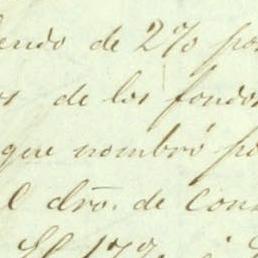 endo de 2% po
os de los fondos
que nombró po
l dro. de Con